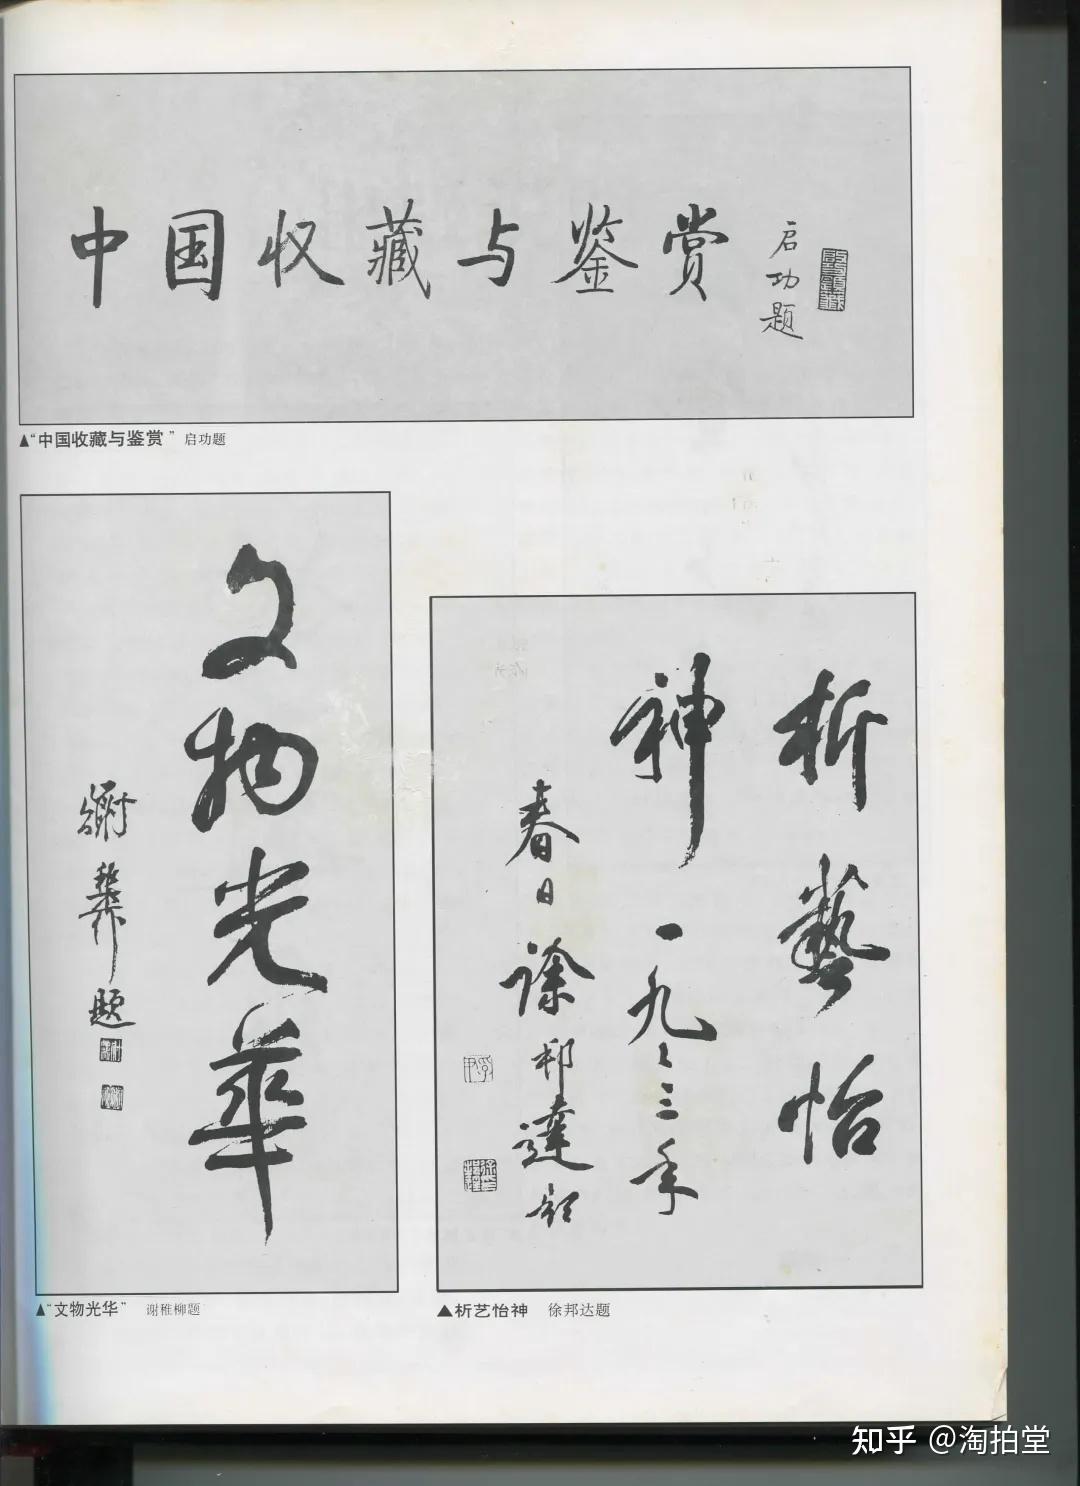 中国收藏与鉴赏
启功题
▲“中国收藏与鉴赏” 启功题
文物光華
謝稚柳題
▲“文物光华” 谢稚柳题
析藝怡
神 一九九三年
春日 徐邦達題
▲析艺怡神 徐邦达题
知乎 @淘拍堂